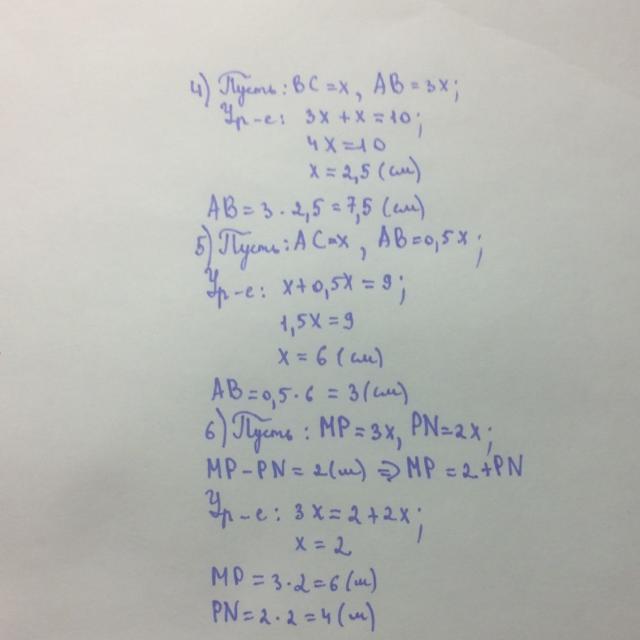 4) Пусть: BC=x, AB=3x;
Ур-е: 3x+x=10;
4x=10
x=2,5(см)
AB=3·2,5=7,5(см)
5) Пусть: AC=x, AB=0,5x;
Ур-е: x+0,5x=9;
1,5x=9
x=6(см)
AB=0,5·6=3(см)
6) Пусть: MP=3x, PN=2x;
MP-PN=2(м) ⇒ MP=2+PN
Ур-е: 3x=2+2x;
x=2
MP=3·2=6(м)
PN=2·2=4(м)